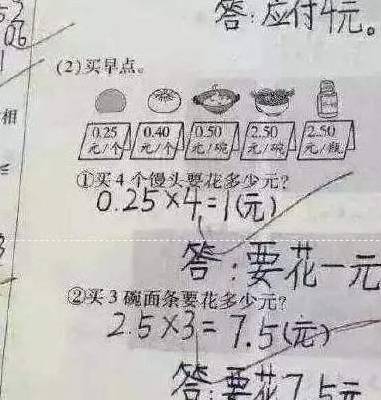 答:应付4元。
06
(2)买早点。
相
0.25 0.40 0.50 2.50 2.50
元/个 元/个 元/碗 元/碗 元/瓶
①买4个馒头要花多少元?
0.25×4=1(元)
答:要花一元
②买3碗面条要花多少元?
2.5×3=7.5(元)
答:要花7.5元